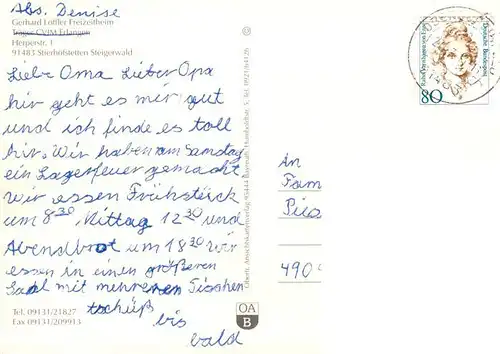 Abs. Denise
Gerhard Löffler Freizeitheim
Träger CVJM Erlangen
Herperstr. 1
91483 Stierhöfstetten Steigerwald
Liebe Oma Lieber Opa
hir geht es mir gut
und ich finde es toll
hir. Wir haben am Samstag
ein Lagerfeuer gemacht
Wir essen Frühstück
um 8 30, Mittag 12 30 und
Abendbrot um 18 30 Wir
essen in einen größeren
Saal mit mehreren Tischen
tschüß
bis
bald
Tel. 09131/21827
Fax 09131/209913
OA
B
An
Fam
Pics
490
Deutsche Bundespost
80